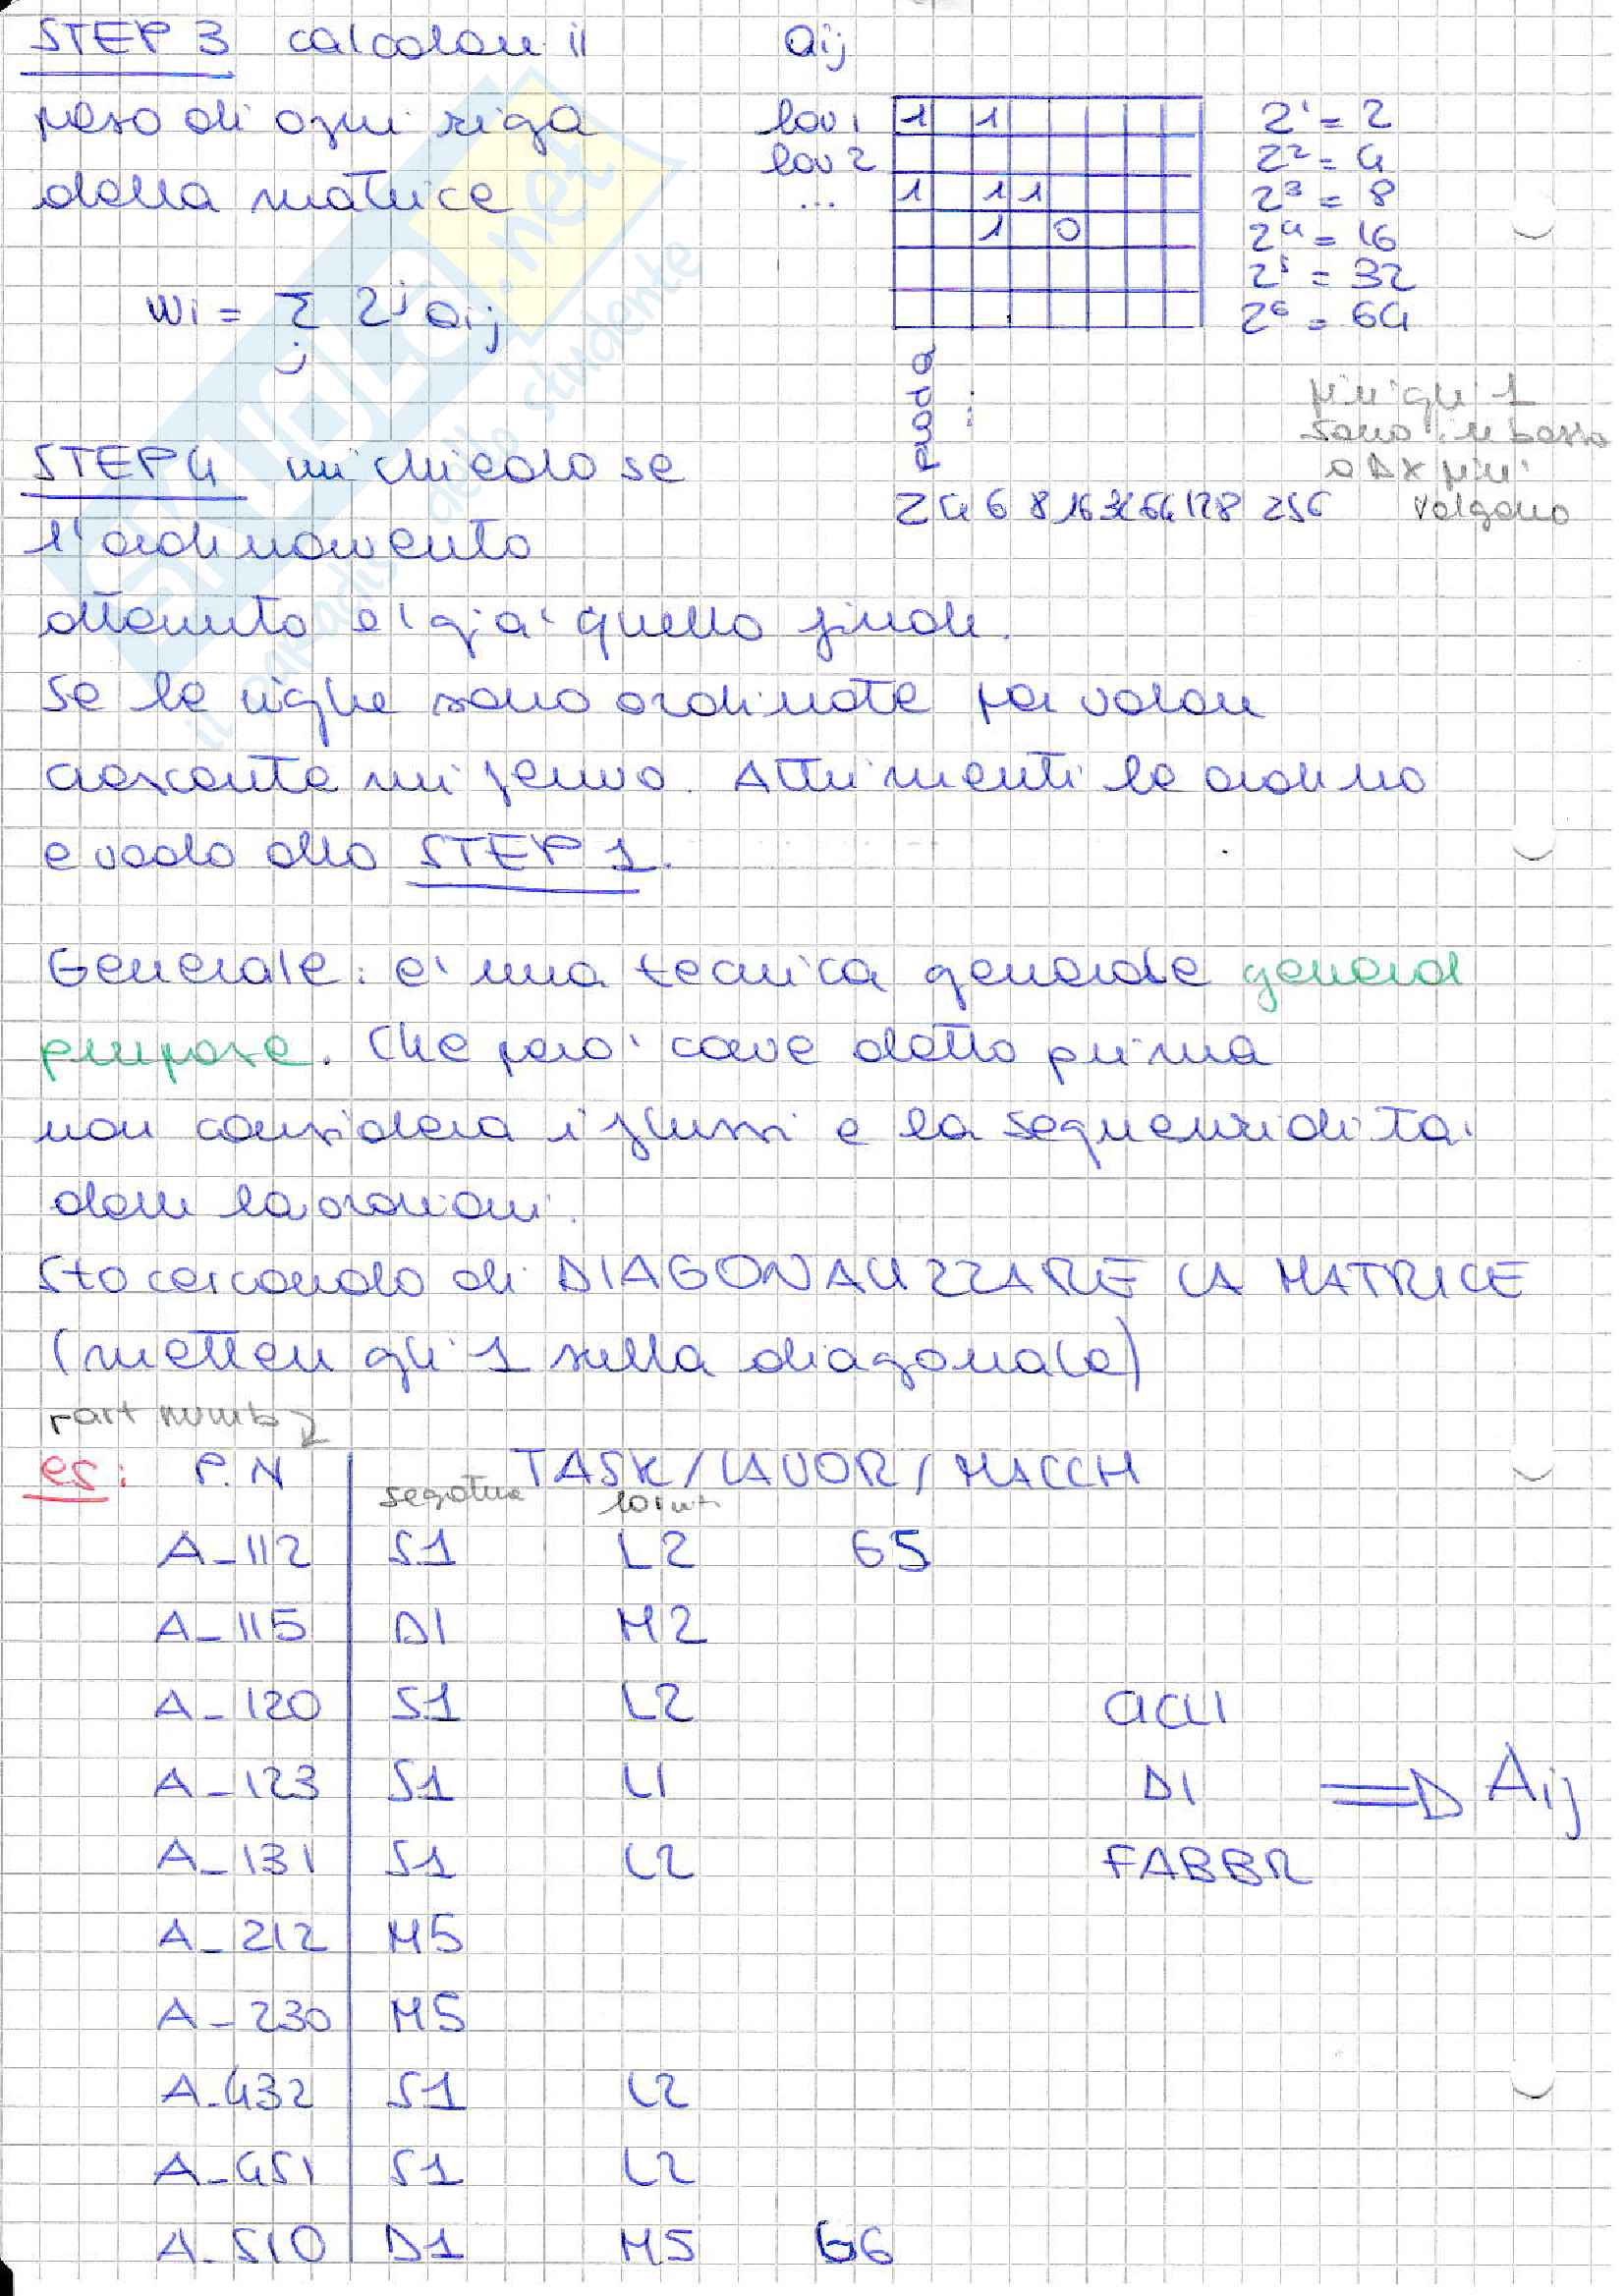 STEP 3 calcolare il aij
peso di ogni riga
della matrice
lav 1 1 1 2¹ = 2
lav 2 2² = 4
... 1 1 1 2³ = 8
1 0 2⁴ = 16
2⁵ = 32
2⁶ = 64
wi = Σ 2ʲ aij
j
prod a
...
più gli 1
sono in basso
a DX più
valgono
2 4 6 8 16 32 64 128 256
STEP 4 mi chiedo se
l'ordinamento
ottenuto e' gia' quello finale.
Se le righe sono ordinate per valore
crescente mi fermo. Altrimenti le ordino
e vado allo STEP 1.
Generale: e' una tecnica generale general
purpose. Che pero' come detto prima
non considera i flussi e la sequenzialita'
delle lavorazioni.
Sto cercando di DIAGONALIZZARE LA MATRICE
(mettere gli 1 sulla diagonale)
part numb
es: P.N TASK/LAVOR/MACCH
segatura
A_112 S1 L2 G5
A_115 D1 M2
A_120 S1 L2 CICLI
A_123 S1 L1 DI => Aij
A_131 S1 L2 FABBR
A_212 M5
A_230 M5
A_432 S1 L2
A_451 S1 L2
A_510 D1 M5 G6
SKUOLA.net
il paradiso dello studente